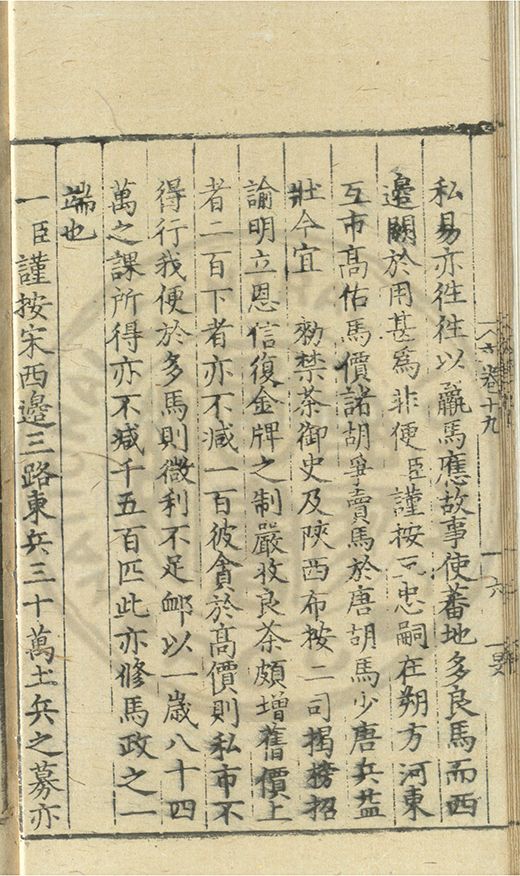 卷十九
六
私易亦徃徃以羸馬應故事使蕃地多良馬而西
邊闕於用甚爲非便臣謹按王忠嗣在朔方河東
互市高估馬價諸胡爭賣馬於唐胡馬少唐兵益
壯今宜 勑禁茶御史及陜西布按二司揭榜招
諭明立恩信復金牌之制嚴收良茶頗增舊價上
者二百下者亦不减一百彼貪於高價則私市不
得行我便於多馬則微利不足䘏以一歲八十四
萬之課所得亦不减千五百匹此亦修馬政之一
端也
一臣謹按宋西邊三路東兵三十萬土兵之募亦